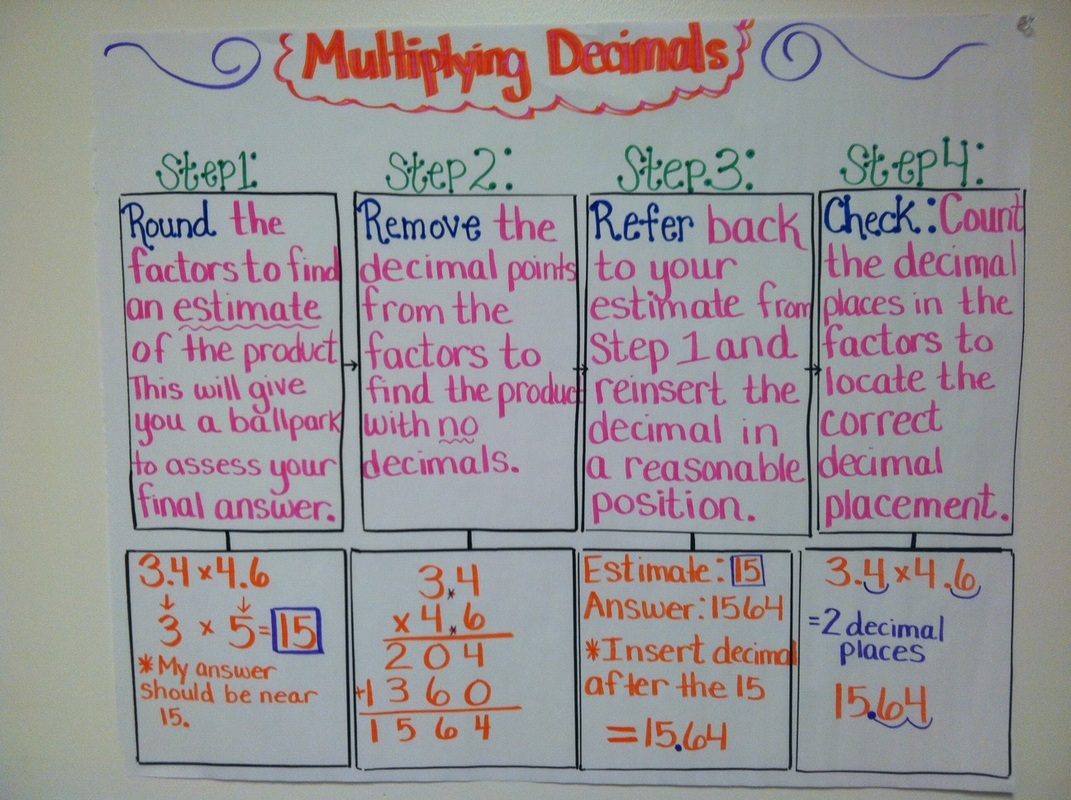 Multiplying Decimals
Step1:
Round the
factors to find
an estimate
of the product
This will give
you a ballpark
to assess your
final answer.
3.4 × 4.6
↓ ↓
3 × 5 = 15
*My answer
should be near
15.
Step2:
Remove the
decimal points
from the
factors to
find the product
with no
decimals.
3.4
× 4.6
204
+1360
1564
Step3:
Refer back
to your
estimate from
Step 1 and
reinsert the
decimal in
a reasonable
position.
Estimate: 15
Answer: 1564
*Insert decimal
after the 15
= 15.64
Step4:
Check: Count
the decimal
places in the
factors to
locate the
correct
decimal
placement.
3.4 × 4.6
= 2 decimal
places
15.64